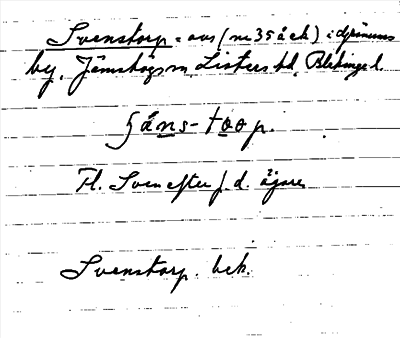 Svenstorp = avs (nr 35 å ek) i djrämes
by, Jämshögs sn, Listers hd, Blekinge l.
sáns-toop.
Fl. Sven efter f.d. äjare
Svenstorp. bek.